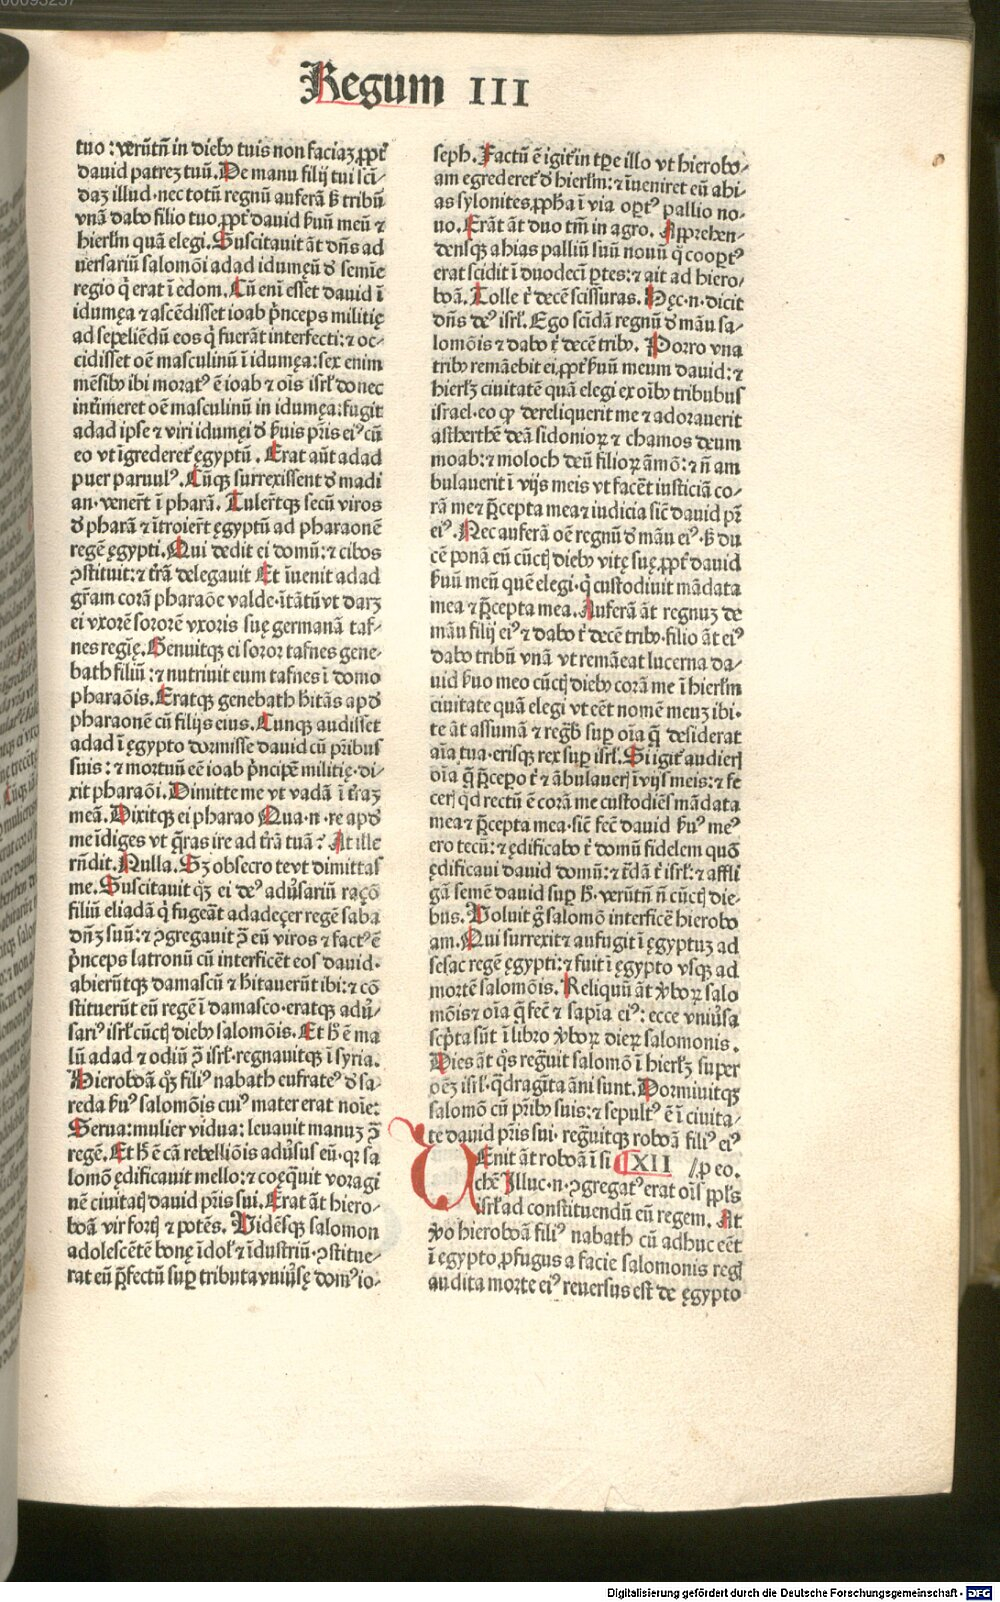 00093237
Regum III
tuo : verūtñ in dieb⁹ tuis non faciaʒ ꝓpt̄
dauid patreʒ tuū. De manu filij tui sci-
daʒ illud · nec totū regnū auferā sʒ tribū
vnā dabo filio tuo ꝓpt̄ dauid ẜuū meū ⁊
hierl̄m quā elegi. Suscitauit āt dñs ad
uersariū salomōi adad idumęū đ semīe
regio q̇ erat ī edom. Cū enī esset dauid ī
idumęa ⁊ ascēdisset ioab p̄nceps militię
ad sepeliēdū eos q̇ fuerāt interfecti: ⁊ oc-
cidisset oēm masculinū ī idumęa: sex enim
mēsib⁹ ibi morat⁹ ē ioab ⁊ oīs isrl̄ donec
intīmeret oēm masculinū in idumęa: fugit
adad ipse ⁊ viri idumęi đ ẜuis pr̄is ei⁹ cū
eo vt īgrederet̄ ęgyptū . Erat aūt adad
puer paruul⁹. Cūqʒ surrexissent đ madi
an · venerūt ī pharā. Tulerūtqʒ secū viros
đ pharā ⁊ ītroierūt ęgyptū ad pharaonē
regē ęgypti. Qui dedit ei domū: ⁊ cibos
ꝯstituit: ⁊ t̄rā delegauit Et īuenit adad
gr̄am corā pharaōe valde · ītātū vt darʒ
ei vxorē sororē vxoris suę germanā taf-
nes regię. Genuitqʒ ei soror tafnes gene-
bath filiū : ⁊ nutriuit eum tafnes ī domo
pharaōis. Eratqʒ genebath hītās apđ
pharaonē cū filijs eius. Cunqʒ audisset
adad ī ęgypto dormisse dauid cū pr̄ibus
suis : ⁊ mortuū eē ioab p̄ncipē militię · di-
xit pharaōi. Dimitte me vt vadā ī t̄raʒ
meā. Dixitqʒ ei pharao Qua · n · re apđ
me īdiges vt q̄ras ire ad t̄rā tuā ? At ille
rñdit. Nulla. Sʒ obsecro te vt dimittas
me. Suscitauit qʒ ei de⁹ adūsariū raçō
filiū eliadā q̇ fugeāt adadeçer regē saba
dñʒ suū: ⁊ ꝯgregauit ꝯ̄ eū viros ⁊ fact⁹ ē
p̄nceps latronū cū interficēt eos dauid ·
abierūtqʒ damascū ⁊ hitauerūt ibi: ⁊ cō
stituerūt eū regē ī damasco · eratqʒ adū-
sari⁹ isrl̄ cūctꝭ dieb⁹ salomōis. Et h̄ ē ma
lū adad ⁊ odiū ꝯ̄ isrl̄ · regnauitqʒ ī syria.
Hieroboā qʒ fili⁹ nabath eufrate⁹ đ sa-
reda ẜu⁹ salomōis cui⁹ mater erat noīe:
Serua: mulier vidua: leuauit manuʒ ꝯ̄
regē. Et h̄ ē cā rebelliōis adūsus eū · qr sa
lomō ędificauit mello: ⁊ coęq̄uit voragi
nē ciuitatꝭ dauid pr̄is sui. Erat āt hiero-
boā vir fortꝭ ⁊ potēs. Vidēsqʒ salomon
adolescētē bonę īdol̄ ⁊ īdustriū · ꝯstitue-
rat eū p̄fectū sup̱ tributa vniūsę dom⁹ io-
seph. Factū ē igit̄ in tꝑe illo vt hierobo-
am egrederet̄ đ hierl̄m: ⁊ īueniret eū ahi-
as sylonites ꝓpha ī via opt⁹ pallio no-
uo. Erāt āt duo tm̄ in agro. Apprehen-
densqʒ ahias palliū suū nouū q̇ coopt⁹
erat scidit ī duodecī ꝑtes: ⁊ ait ad hiero-
boā. Tolle t̄ decē scissuras. Hęc · n · dicit
dñs de⁹ isrl̄. Ego scīdā regnū đ māu sa-
lomōis ⁊ dabo t̄ decē trib⁹. Porro vna
trib⁹ remāebit ei ꝓpt̄ ẜuum meum dauid: ⁊
hierl̄ʒ ciuitatē quā elegi ex oīb⁹ tribubus
israel · eo ꝙ dereliquerit me ⁊ adorauerit
astherthē deā sidonioꝝ ⁊ chamos deum
moab: ⁊ moloch deū filioꝝ āmō: ⁊ ñ am
bulauerit ī vijs meis vt facēt iusticiā co-
rā me ⁊ p̄cepta mea ⁊ iudicia sic̄ dauid pr̄
ei⁹. Nec auferā oē regnū đ māu ei⁹ · sʒ du
cē ponā eū cūctꝭ dieb⁹ vitę suę ꝓpt̄ dauid
ẜuū meū quē elegi · q̇ custodiuit mādata
mea ⁊ p̄cepta mea. Auferā āt regnuʒ de
māu filij ei⁹ ⁊ dabo t̄ decē trib⁹ · filio āt ei⁹
dabo tribū vnā vt remāeat lucerna da-
uid ẜuo meo cūctꝭ dieb⁹ corā me ī hierl̄m
ciuitate quā elegi vt eēt nomē meuʒ ibi ·
te āt assumā ⁊ regb̄ sup̱ oīa q̄ desiderat
aīa tua · erisqʒ rex sup̱ isrl̄. Si igit̄ audierꝭ
oīa q̄ p̄cepo t̄ ⁊ ābulauerꝭ ī vijs meis: ⁊ fe
cerꝭ qđ rectū ē corā me custodiēs mādata
mea ⁊ p̄cepta mea · sic̄ fec̄ dauid ẜu⁹ me⁹
ero tecū: ⁊ ędificabo t̄ domū fidelem quō
ędificaui dauid domū: ⁊ t̄dā t̄ isrl̄: ⁊ affli
gā semē dauid sup̱ h̄ · verūtñ ñ cūctꝭ die-
bus. Voluit g̊ salomō interficē hierobo
am. Qui surrexit ⁊ aufugit ī ęgyptuʒ ad
sesac regē ęgypti: ⁊ fuit ī ęgypto vsqʒ ad
mortē salomōis. Reliquū āt v̇boꝝ salo
mōis ⁊ oīa q̄ fec̄ ⁊ sapīa ei⁹: ecce vniūsa
scp̄ta sūt ī libro v̇boꝝ dieꝝ salomonis .
Dies āt q̊s regūit salomō ī hierl̄ʒ super
oēʒ isrl̄ · q̄dragīta āni sunt. Dormiuitqʒ
salomō cū pr̄ib⁹ suis: ⁊ sepult⁹ ē ī ciuita-
te dauid pr̄is sui · regūitqʒ roboā fili⁹ ei⁹
VEnit āt roboā ī si XII // ꝑ eo.
chē Illuc · n · ꝯgregat⁹ erat oīs ꝓpl̄s
isrl̄ ad constituendū eū regem. At
v̇o hieroboā fili⁹ nabath cū adhuc eēt
ī ęgypto ꝓfugus a facie salomonis regꝭ
audita morte ei⁹ reuersus est de ęgypto
Digitalisierung gefördert durch die Deutsche Forschungsgemeinschaft · DFG